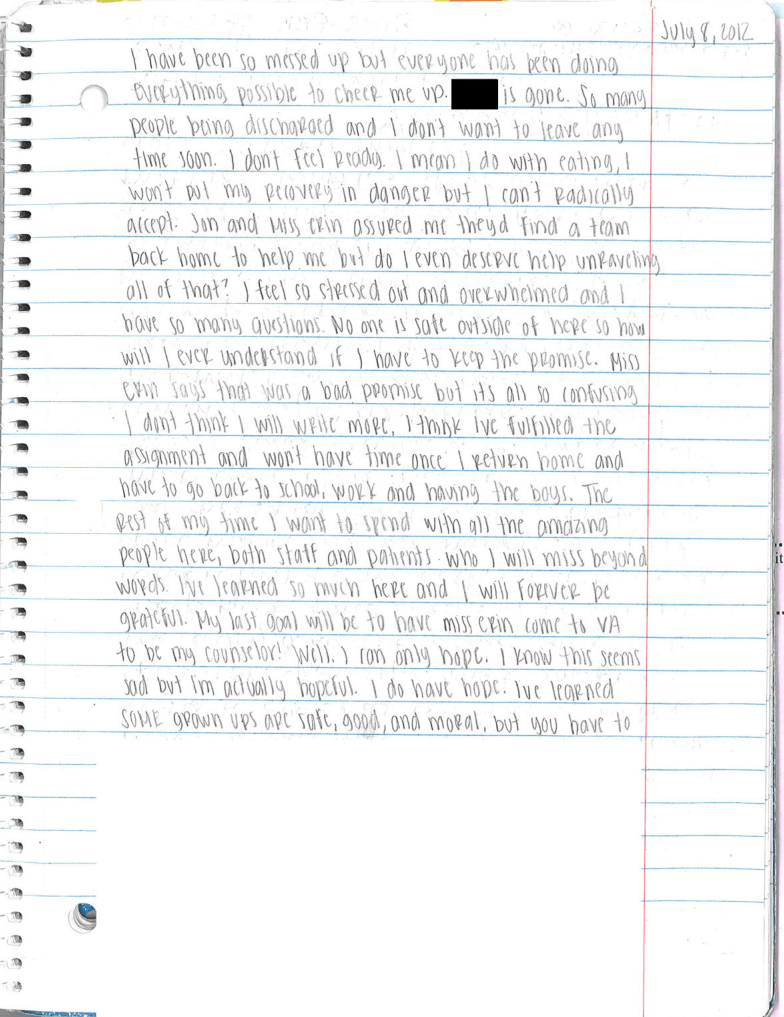 July 8, 2012
I have been so messed up but everyone has been doing
everything possible to cheer me up. is gone. So many
people being discharged and I don't want to leave any
time soon. I dont feel ready. I mean I do with eating, I
won't put my recovery in danger but I can't radically
accept. Jon and Miss Erin assured me theyd find a team
back home to help me but do I even deserve help unraveling
all of that? I feel so stressed out and overwhelmed and I
have so many questions. No one is safe outside of here so how
will I ever understand if I have to keep the promise. Miss
Erin says that was a bad promise but its all so confusing
I dont think I will write more, I think Ive fulfilled the
assignment and won't have time once I return home and
have to go back to school, work and having the boys. The
rest of my time I want to spend with all the amazing
people here, both staff and patients who I will miss beyond
words. I've learned so much here and I will forever be
grateful. My last goal will be to have miss erin come to VA
to be my counselor! Well. I can only hope. I know this seems
sad but I'm actually hopeful. I do have hope. I've learned
SOME grown ups are safe, good, and moral, but you have to
it